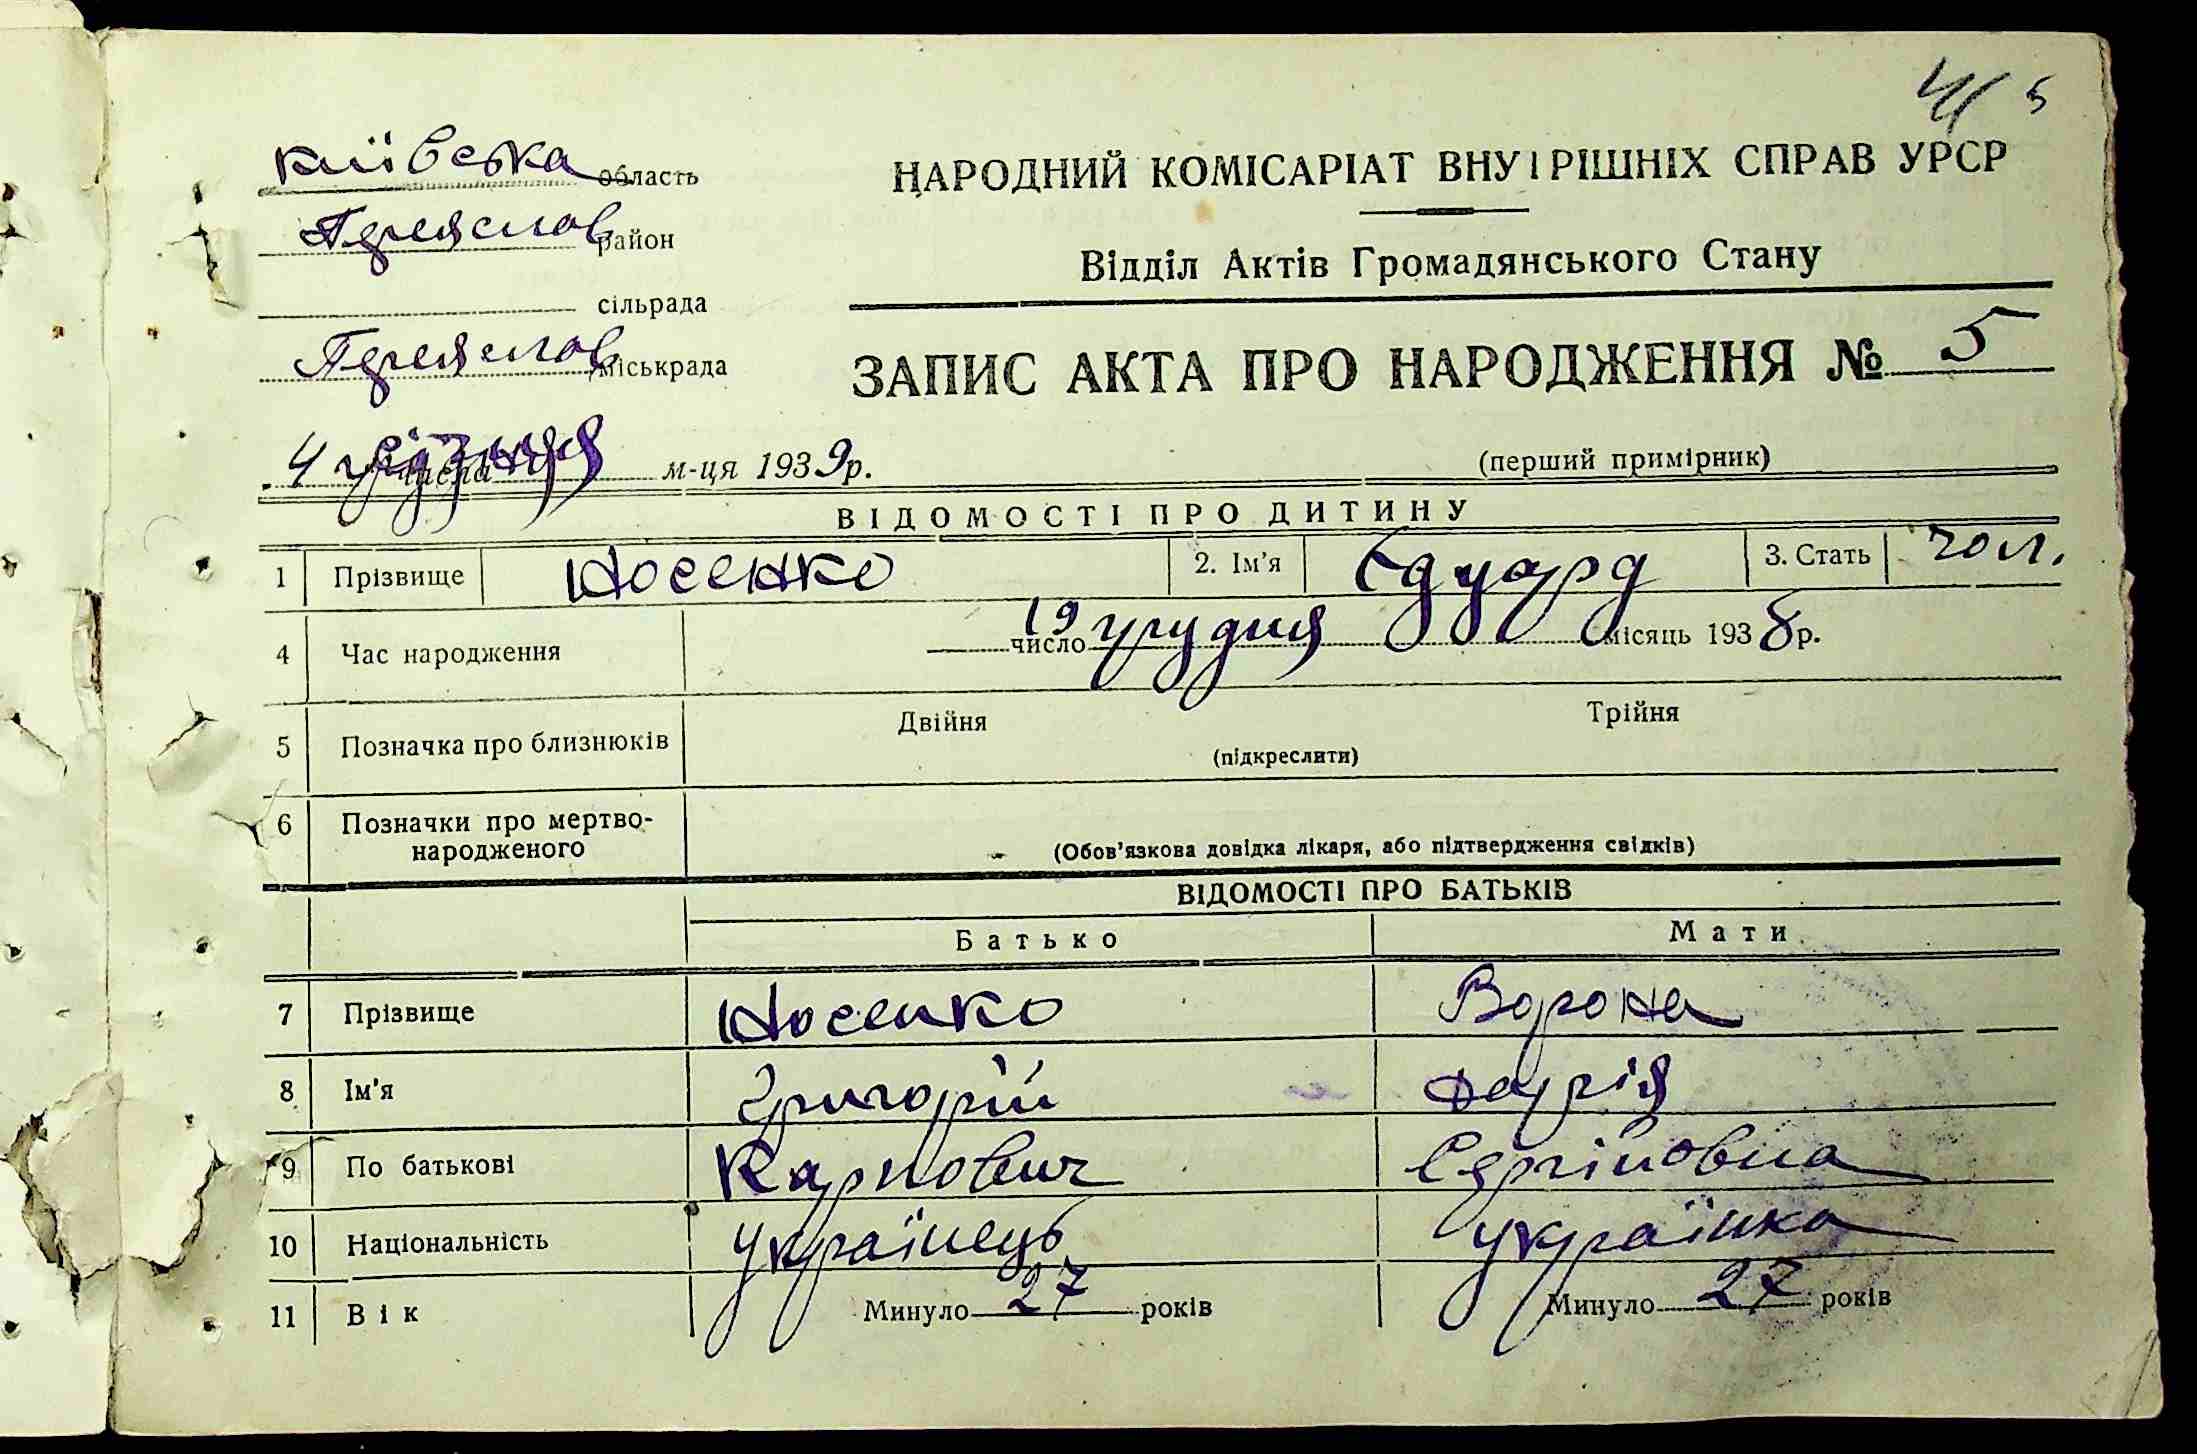 4 5
Київська область
НАРОДНИЙ КОМІСАРІАТ ВНУТРІШНІХ СПРАВ УРСР
Переяслав район
Відділ Актів Громадянського Стану
сільрада
Переяслав міськрада
ЗАПИС АКТА ПРО НАРОДЖЕННЯ № 5
4 числа січня м-ця 1939р.
(перший примірник)
ВІДОМОСТІ ПРО ДИТИНУ
1 Прізвище Носенко 2. Ім'я Едуард 3. Стать чол.
4 Час народження 19 число грудня місяць 1938р.
5 Позначка про близнюків Двійня Трійня
(підкреслити)
6 Позначки про мертво-
народженого
(Обов'язкова довідка лікаря, або підтвердження свідків)
ВІДОМОСТІ ПРО БАТЬКІВ
Батько Мати
7 Прізвище Носенко Ворона
8 Ім'я Григорій Дарія
9 По батькові Карпович Сергіновна
10 Національність Українець Українка
11 Вік Минуло 27 років Минуло 27 років